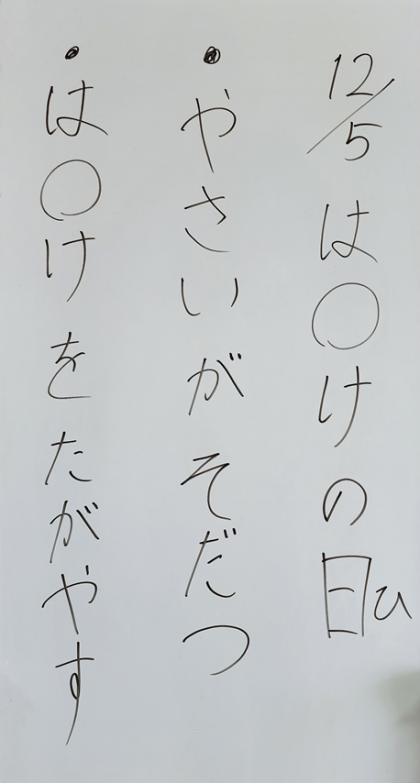 12/5は○けの日ひ
・やさいがそだつ
・は○けをたがやす